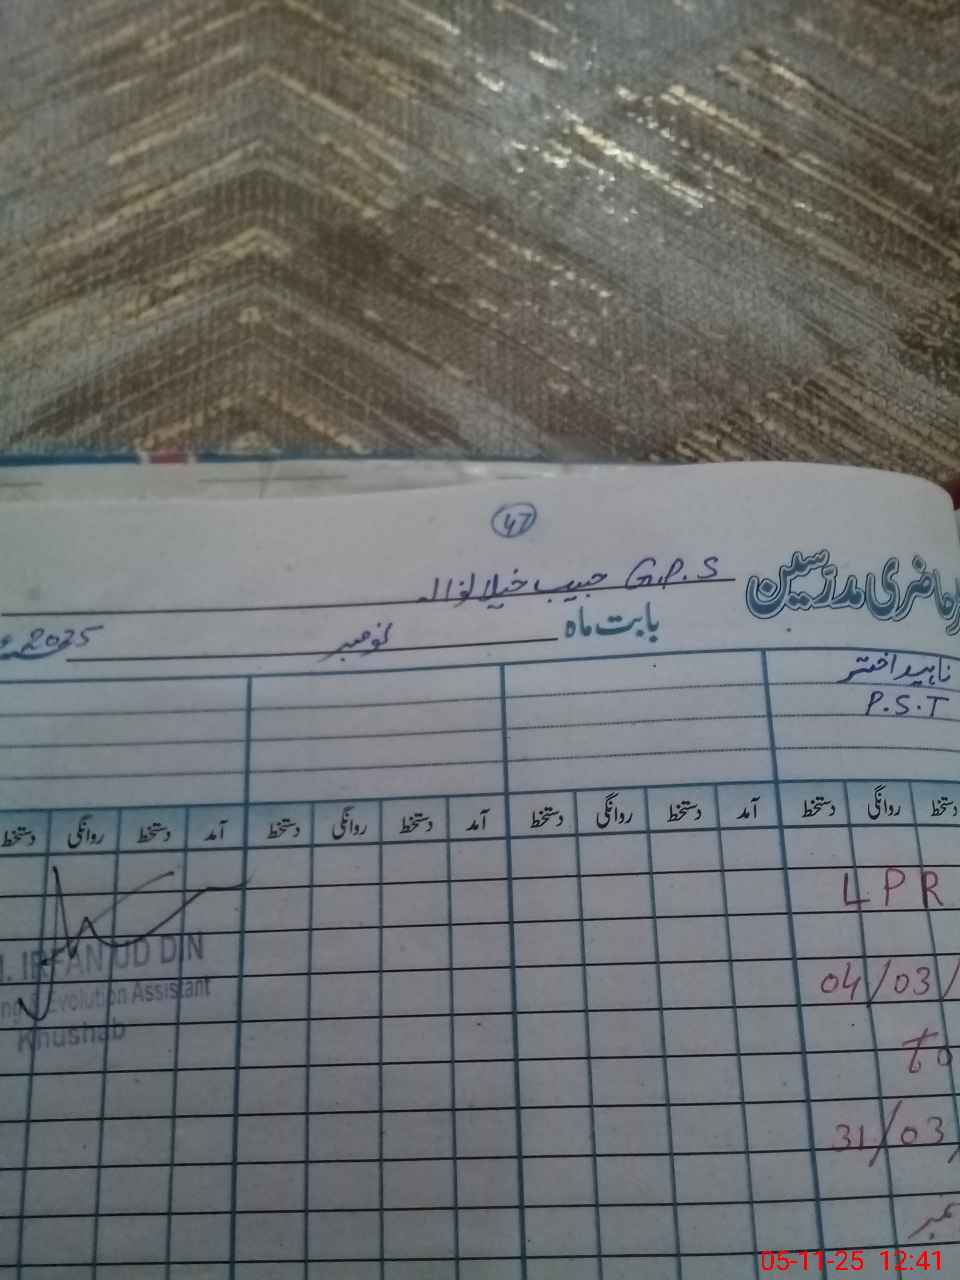 47
حاضری مدرسین G.P.S حبیب
بابت ماہ نومبر 2025ء
ناہید اختر
P.S.T
دستخط روانگی دستخط آمد دستخط روانگی دستخط آمد دستخط روانگی دستخط آمد دستخط روانگی دستخط
LPR
IRFAN UD DIN
Evolution Assistant
Khushab
04/03/
to
31/03/
05-11-25 12:41